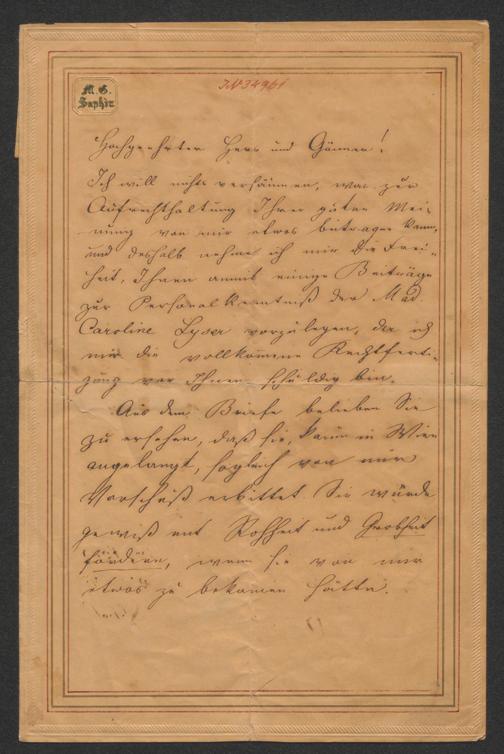 IN 34961
M. G.
Saphir
Hochgeehrter Herr und Gönner!
Ich will nichts versäumen, was zur
Aufrechthaltung Ihrer guten Mei-
nung von mir etwas beitragen kann,
und deshalb nehme ich mir die Frei-
heit, Ihnen anmit einige Beiträge
zur Personalkenntniß der Mad.
Caroline Lyser vorzulegen, da ich
mir die vollkommene Rechtferti-
gung vor Ihnen schuldig bin.
Aus dem Briefe belieben Sie
zu ersehen, daß sie, kaum in Wien
angelangt, sogleich von mir
Vorschuß erbittet. Sie würde
gewiß mit Rohheit und Grobheit
fördern, wenn sie von mir
etwas zu bekommen hätte.